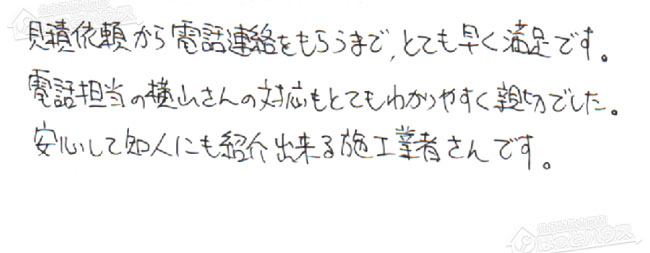 見積依頼から電話連絡をもらうまで、とても早く満足です。
電話担当の横山さんの対応もとてもわかりやすく親切でした。
安心して知人にも紹介出来る施工業者さんです。